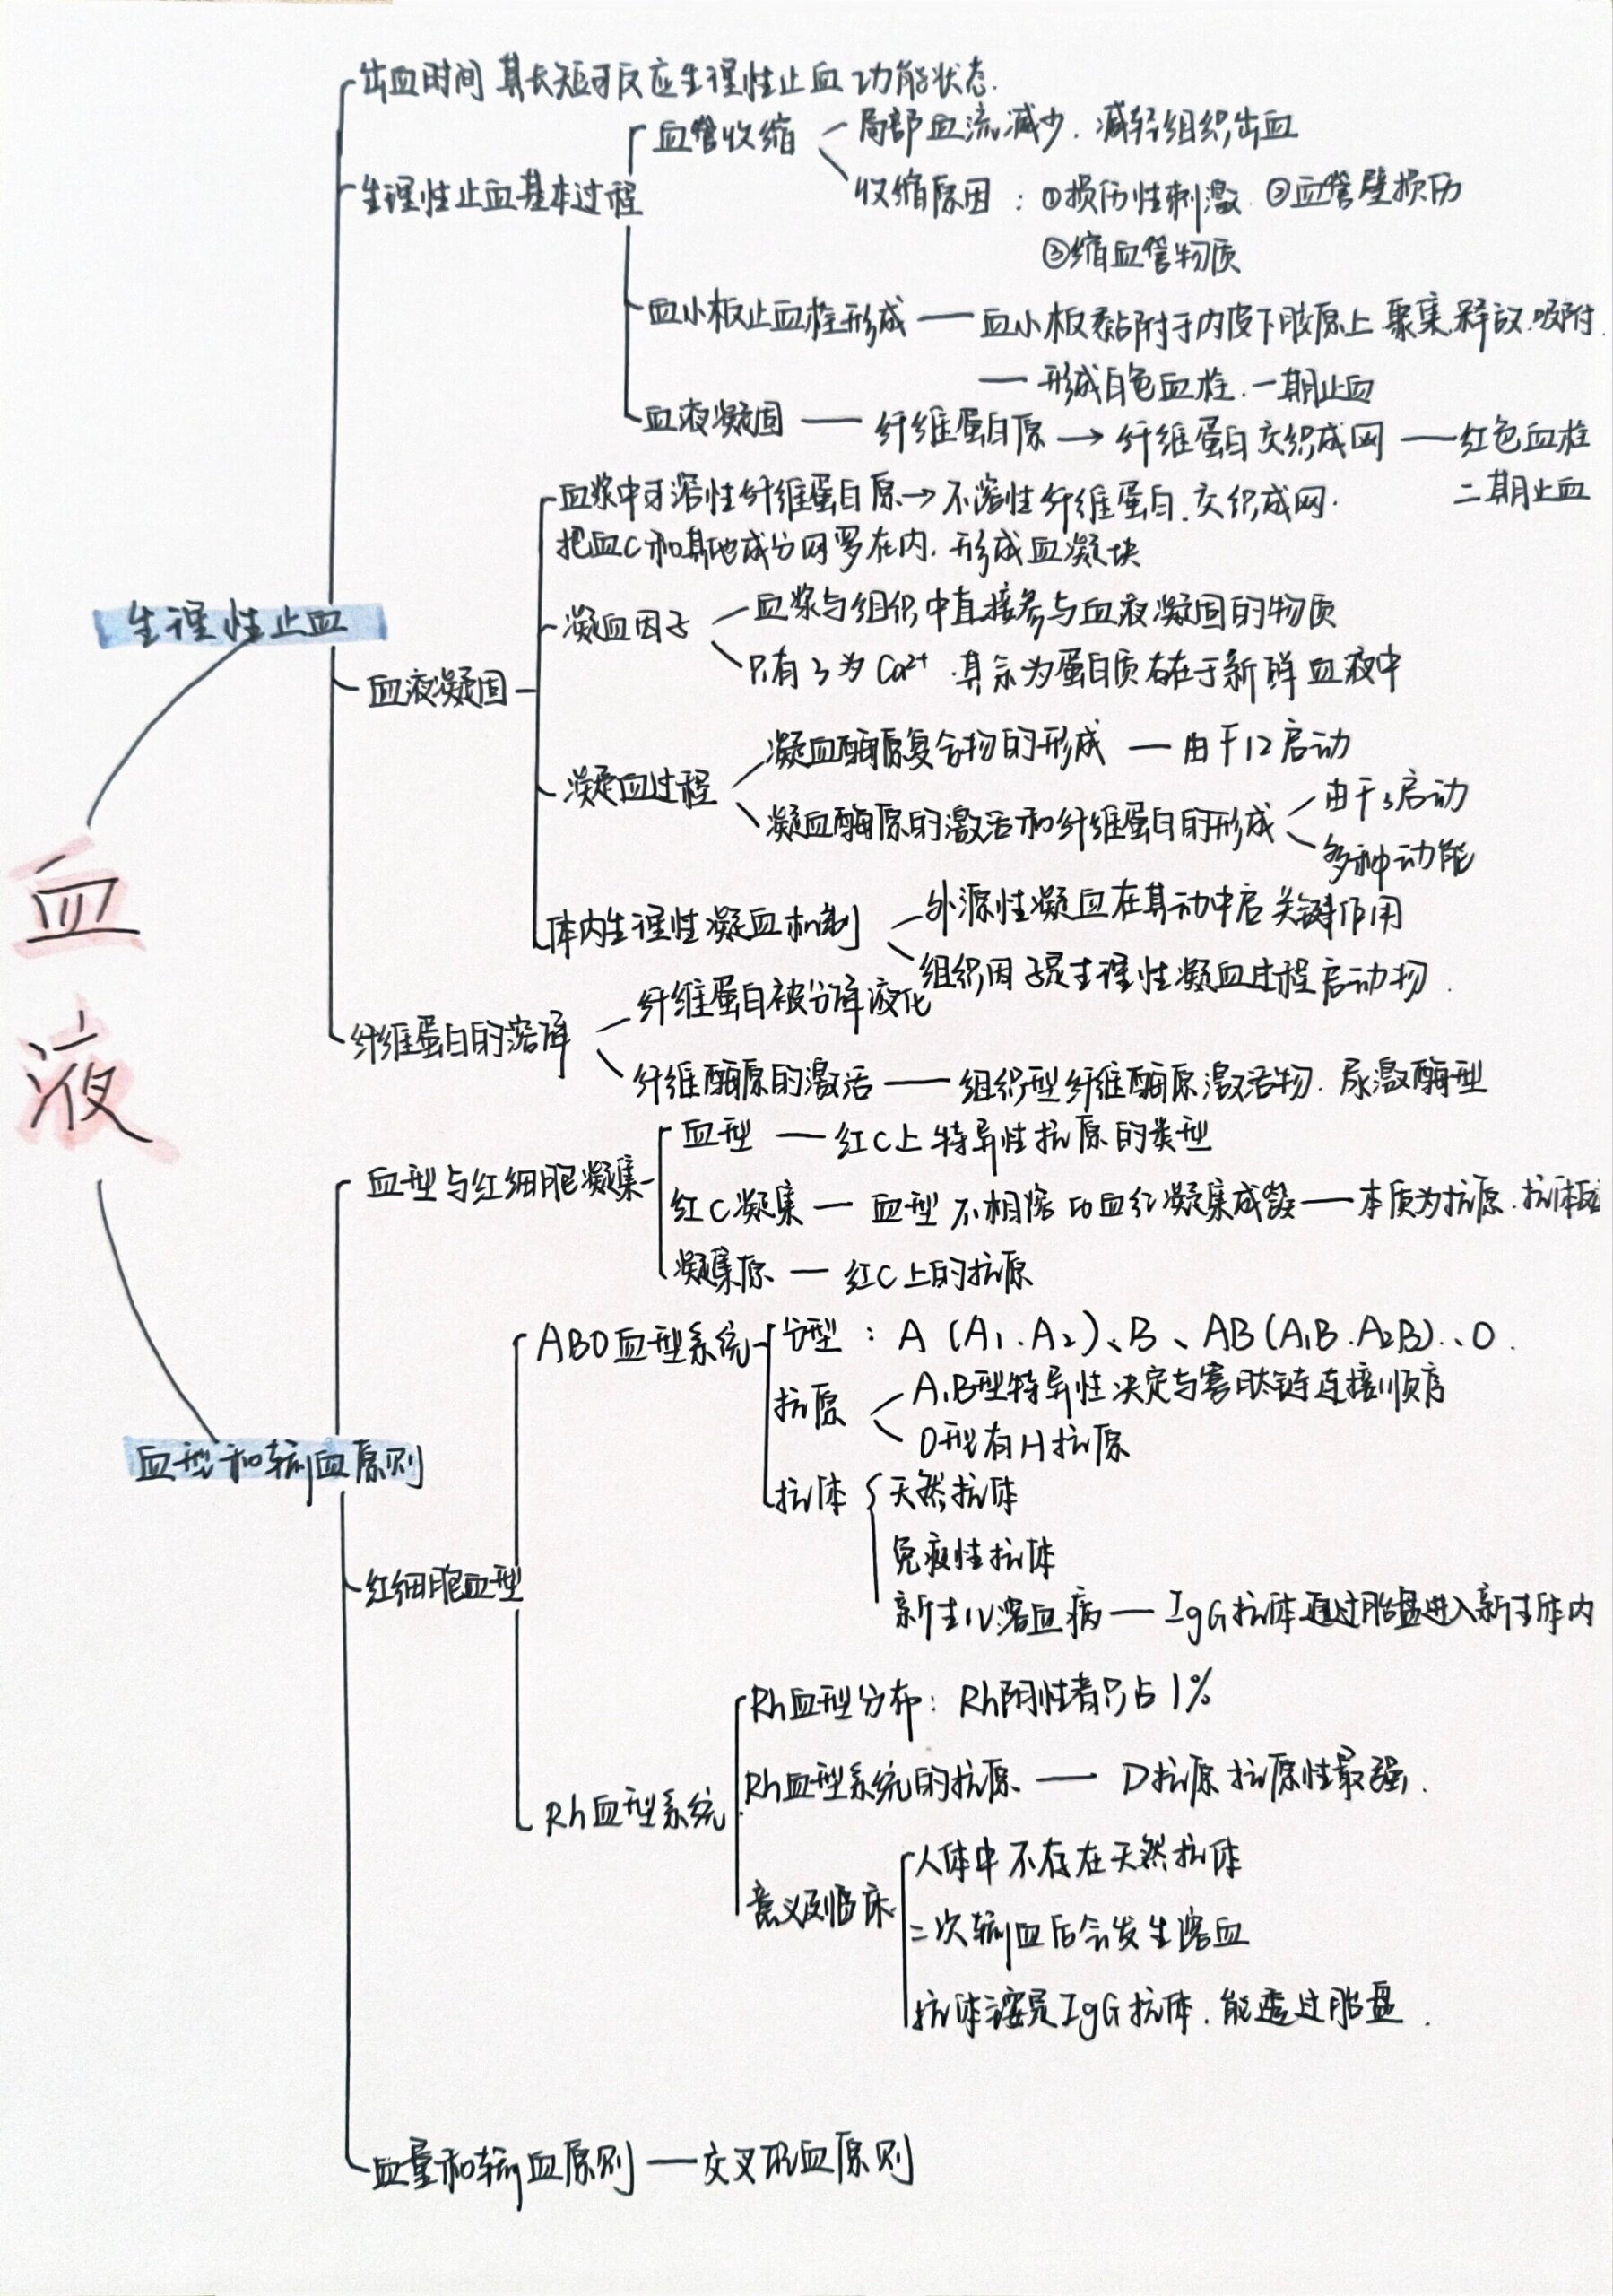 出血时间 其长短可反应生理性止血功能状态.
血管收缩
局部血流减少.减轻组织出血
生理性止血基本过程
收缩原因:①损伤性刺激 ②血管壁损伤
③缩血管物质
血小板止血栓形成 — 血小板黏附于内皮下胶原上 聚集.释放.吸附.
— 形成白色血栓.一期止血
血液凝固 — 纤维蛋白原 → 纤维蛋白交织成网 — 红色血栓
二期止血
血浆中可溶性纤维蛋白原→不溶性纤维蛋白.交织成网.
把血C和其他成分网罗在内.形成血凝块
生理性止血
凝血因子
血浆与组织中直接参与血液凝固的物质
只有3为Ca²⁺.其余为蛋白质存在于新鲜血液中
血液凝固
凝血酶原复合物的形成 — 由于12启动
凝血过程
凝血酶原的激活和纤维蛋白的形成
由于3启动
多种动能
血
体内生理性凝血机制
外源性凝血在其动中启关键作用
组织因子是生理性凝血过程启动物.
纤维蛋白的溶解
纤维蛋白被分解液化
纤维酶原的激活 — 组织型纤维酶原激活物.尿激酶型
液
血型与红细胞凝集
血型 — 红C上特异性抗原的类型
红C凝集 — 血型不相溶的血红凝集成簇 — 本质为抗原.抗体
凝集原 — 红C上的抗原
ABO血型系统
分型:A(A₁.A₂)、B、AB(A₁B.A₂B)、O.
抗原
A.B型特异性决定与寡肽链连接顺序
O型有H抗原
血型和输血原则
抗体
天然抗体
免疫性抗体
红细胞血型
新生儿溶血病 — IgG抗体通过胎盘进入新生体内
Rh血型分布:Rh阴性者只占1%
Rh血型系统的抗原 — D抗原抗原性最强.
Rh血型系统
人体中不存在天然抗体
意义及临床
二次输血后会发生溶血
抗体主要是IgG抗体.能透过胎盘.
血量和输血原则 — 交叉配血原则